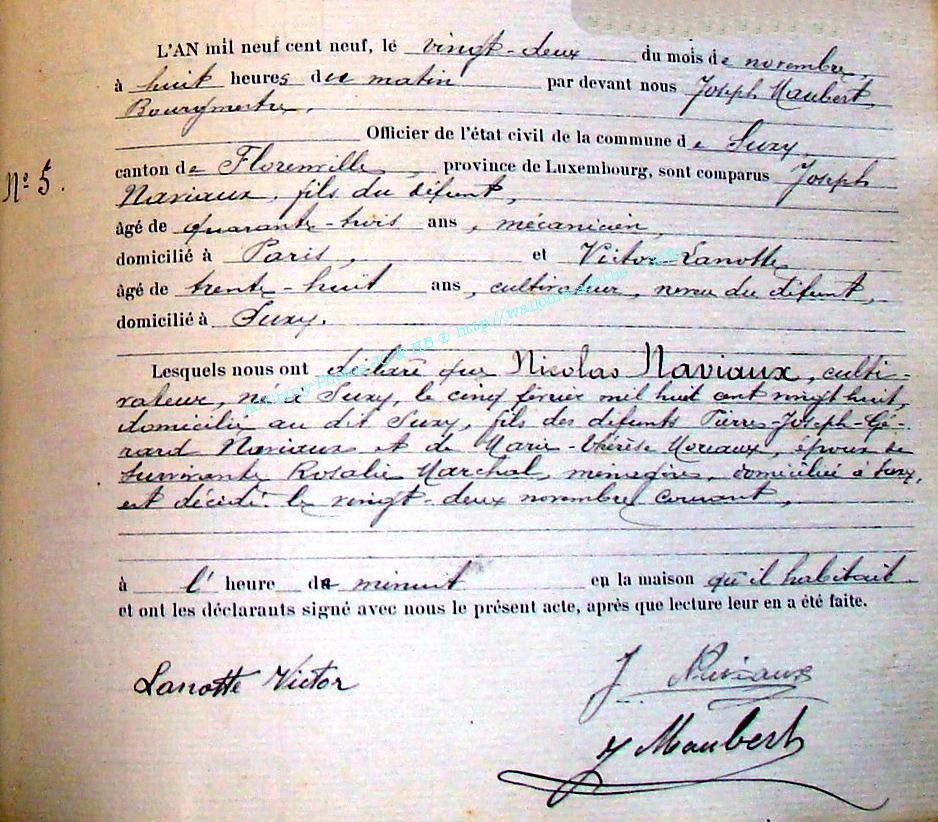 L'AN mil neuf cent neuf, le vingt-deux du mois de novembre,
à huit heures du matin par devant nous Joseph Maubert,
Bourgmestre,
Officier de l'état civil de la commune de Suxy,
Nº 5. canton de Florenville, province de Luxembourg, sont comparus Joseph
Naviaux, fils du défunt,
âgé de quarante-trois ans, mécanicien,
domicilié à Paris, et Victor Lanotte
âgé de trente-huit ans, cultivateur, neveu du défunt,
domicilié à Suxy.
Lesquels nous ont déclaré que Nicolas Naviaux, culti-
vateur, né à Suxy, le cinq février mil huit cent vingt huit,
domicilié au dit Suxy, fils des défunts Pierre-Joseph-Gé-
rard Naviaux et de Marie-Thérèse Moreaux, époux de
survivante Rosalie Marchal, ménagère, domiciliée à Suxy,
est décédé le vingt-deux novembre courant,
à l'heure de minuit en la maison qu'il habitait
et ont les déclarants signé avec nous le présent acte, après que lecture leur en a été faite.
Lanotte Victor J Naviaux
J Maubert